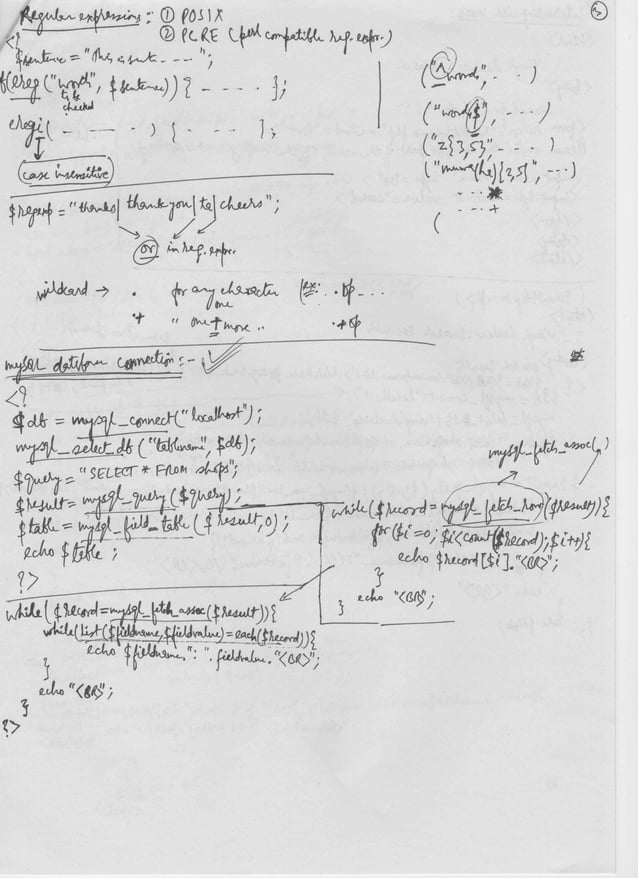 5
Regular expressions: ① POSIX
② PCRE (perl compatible reg. expr.)
<?
$sentence = "This is sent. . . . .";
if(ereg("words", $sentence)) { - - - - };
to be checked
eregi(- - - - - -) { - - - };
case insensitive
("^words", - - -)
("words$", - - - -)
("z{3,5}", - - - -)
(" (he){2,5}", - - -)
- - - *
- - - - +
(
$regexp = "thanks| thank you| ta| cheers";
or in reg. expr.
wildcard → . for any character (ex: . op - - -
one
.+ " one + more .. .+op
mySQL database connection :-
<?
$db = mysql_connect("localhost");
mysql_select_db("tablename", $db);
$query = "SELECT * FROM shops";
$result = mysql_query($query);
$table = mysql_field_table($result,0);
echo $table ;
?>
mysql_fetch_assoc( )
while($record=mysql_fetch_row($result)){
for($i=0; $i<count($record);$i++){
echo $record[$i]."<BR>";
}
echo "<BR>";
}
while($record=mysql_fetch_assoc($result)){
while(list($fieldname,$fieldvalue)=each($record)){
echo $fieldname.":".fieldvalue."<BR>";
}
echo "<BR>";
}
?>